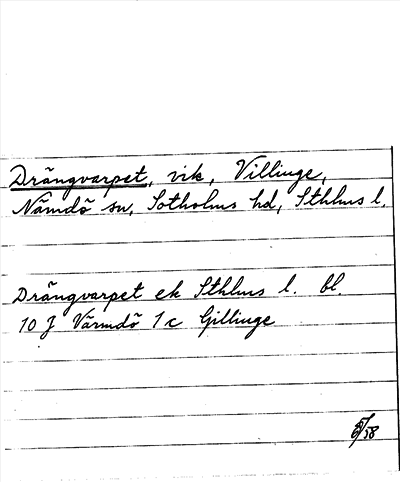 Drängvarpet, vik, Villinge,
Nämdö sn, Sotholms hd, Sthlms l.
Drängvarpet ek Sthlms l. bl.
10 J Värmdö 1c Gillinge